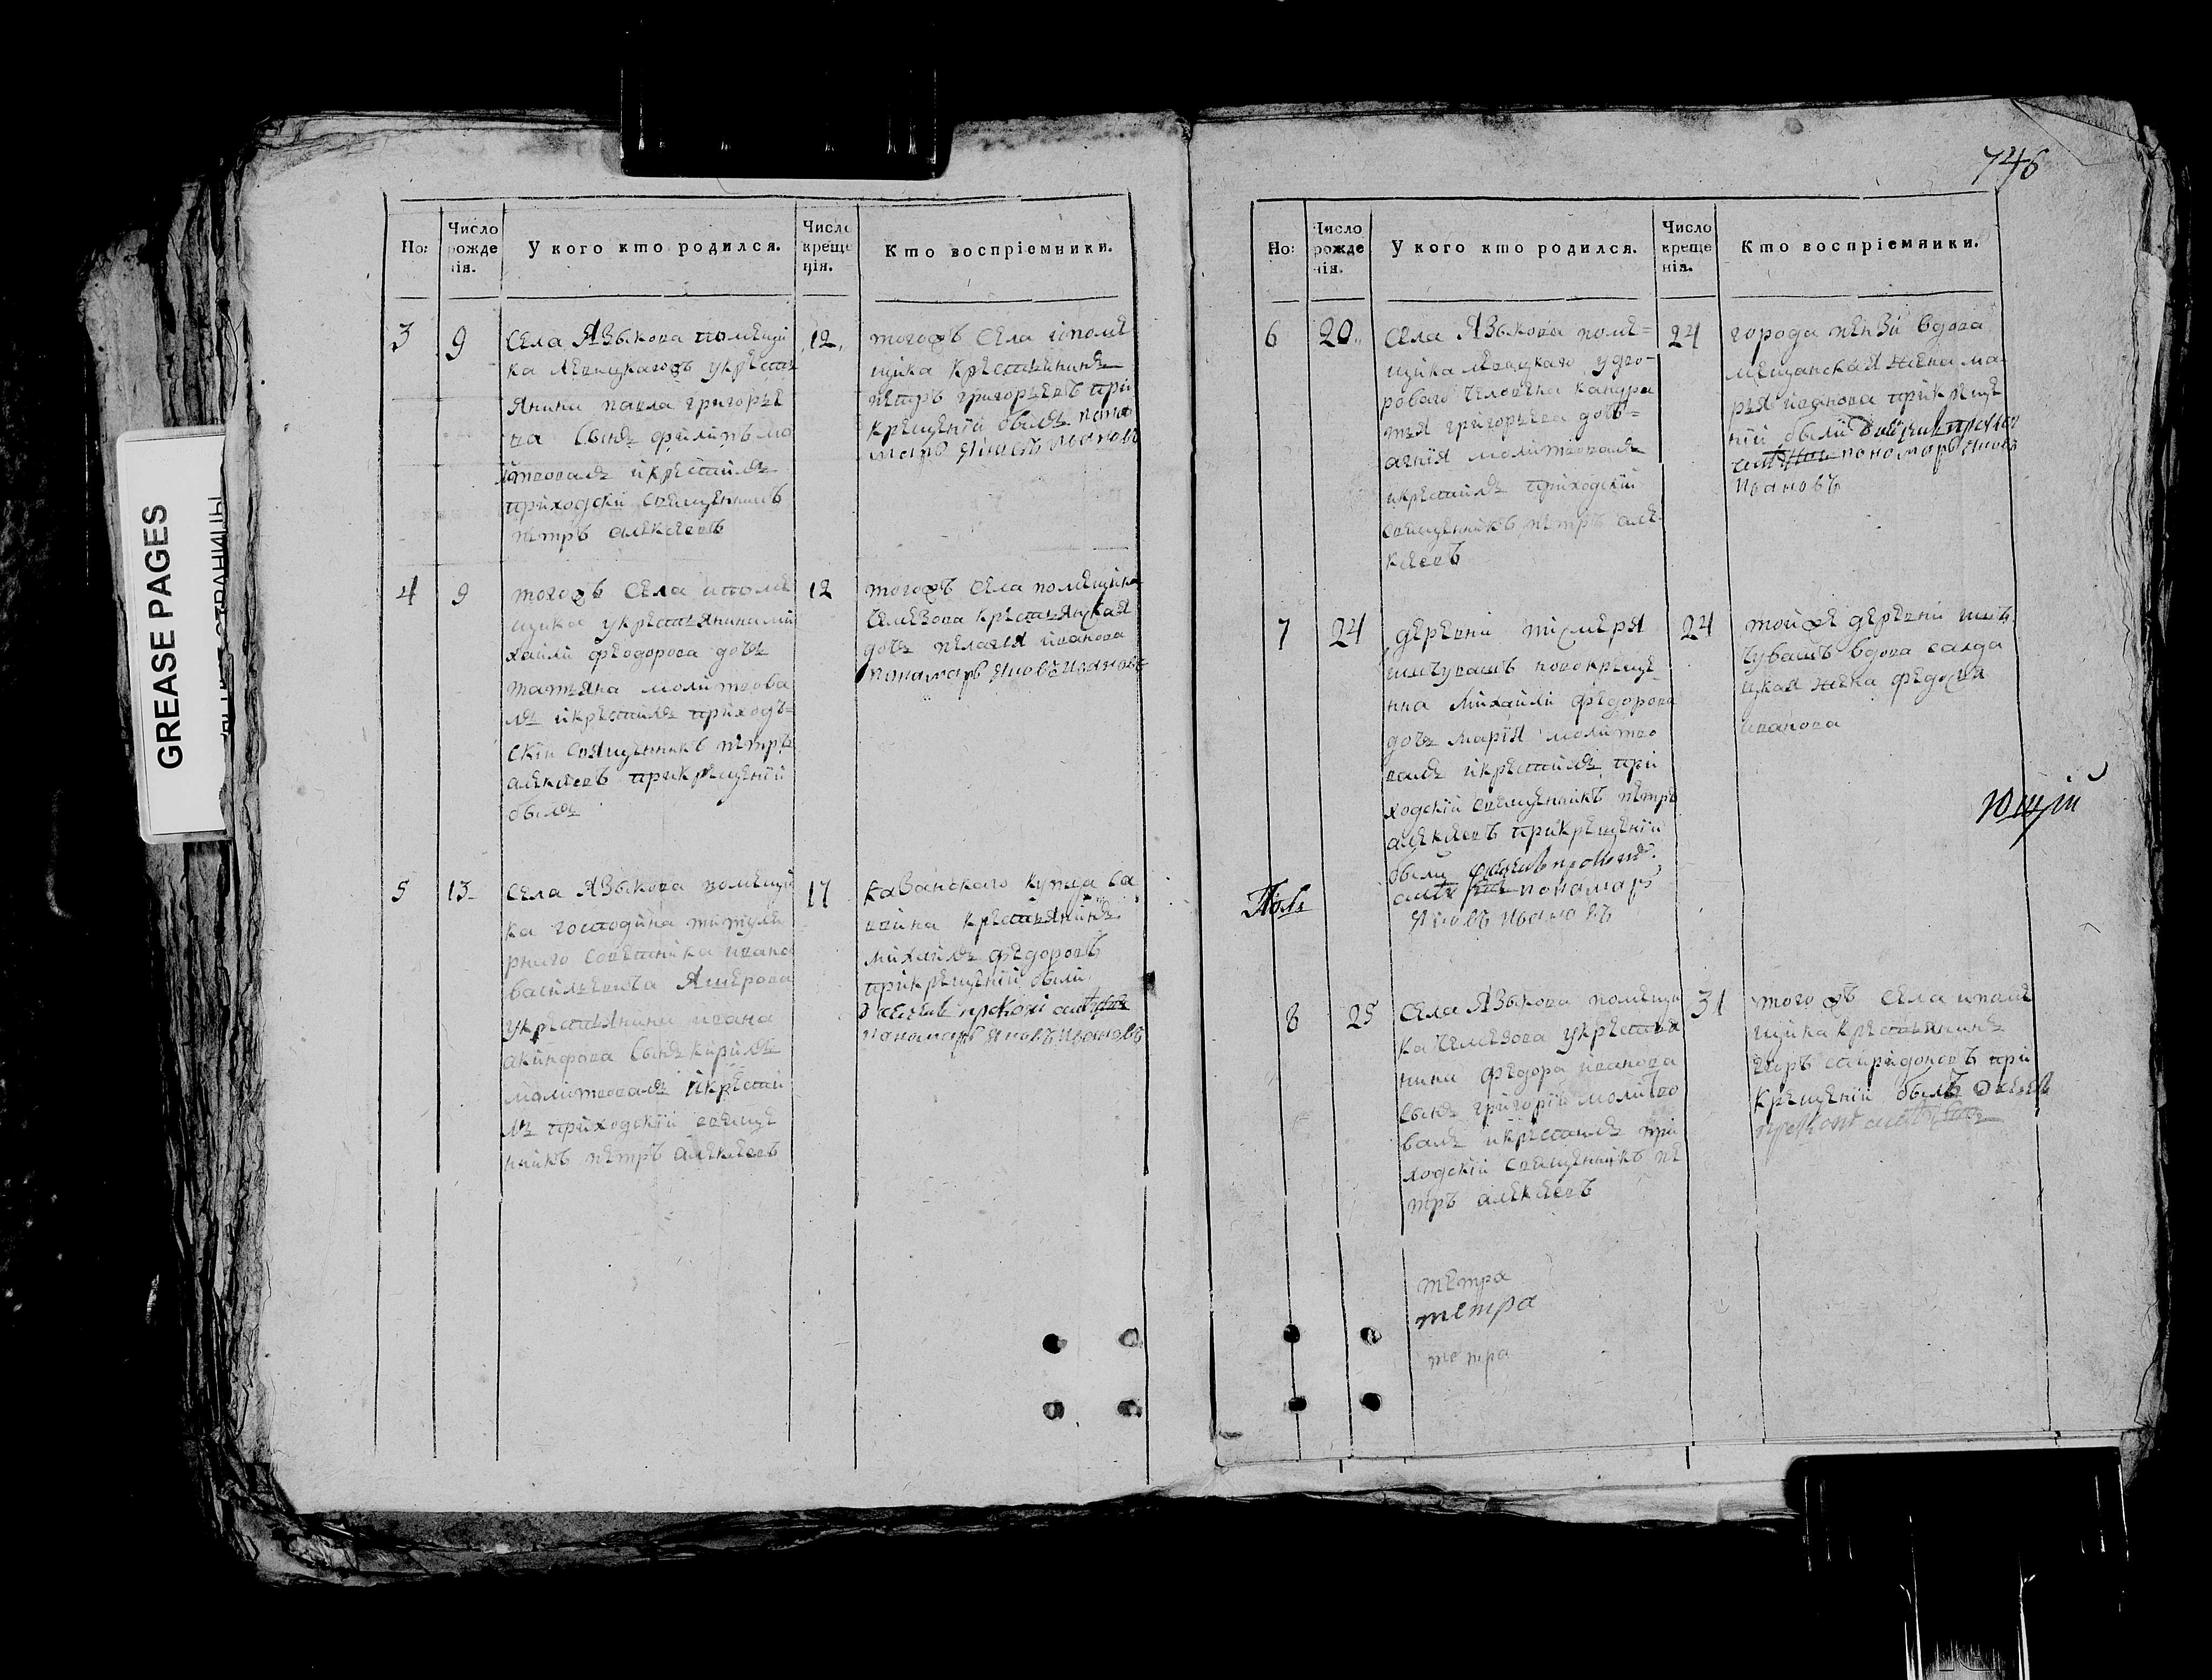 746
GREASE PAGES
Но:
Число рожде нія.
У кого кто родился.
Число креще нія.
Кто воспріемники.
3
9
села Языкова помещи
ка Левицкагожъ укрестъ
янина павла григорье
ва сынъ филипъ мо
литвовалъ икрестилъ
приходскій священникъ
петръ алексеевъ
12
тогожъ села іпоме
щика крестьянинъ
петръ григорьевъ при
крещеніи былъ поно
марь Яковъ Ивановъ
4
9
тогожъ села ипоме
щика укрестьянина ми
хаили феодорова дочь
татьяна молитвова
лъ икрестилъ приход=
скіи священникъ петръ
алексеевъ прикрещеніи
былъ
12
тогожъ села помещика
Чемезова крестьянская
дочь пелагея иванова
понамарь Яковъ Ивановъ
5
13
села Языкова помещи
ка господина титуля
рнаго советника ивана
васильевича
укрестьянина ивана
акинфова сынъ кирилъ
молитвовалъ икрести
лъ приходскіи священ
никъ петръ алексеевъ
17
казанскаго купца са
вина крестьянинъ
михаилъ федоровъ
прикрещеніи были
понамарь Яковъ Ивановъ
Но:
Число рожде нія.
У кого кто родился.
Число креще нія.
Кто воспріемники.
6
20
села Языкова поме=
щика левицкаго удво=
роваго человека
григорьева дочь=
молитвовалъ
икрестилъ приходскіи
священникъ петръ але
ксеевъ
24
города пензы вдова
мещанская жена ма
рья иванова прикреще
ніи были
пономарь Яковъ
Ивановъ
7
24
деревни
новокреще
на михаили федорова
дочь марія молитво
валъ икрестилъ при
ходскіи священникъ петръ
алексеевъ прикрещеніи
были
понамарь
Яковъ Ивановъ
24
тойже деревни
чувашъ вдова салда
цкая жена федосья
иванова
8
25
села Языкова помещи
ка Чемезова укрестья
нина федора иванова
сынъ григорій молитво
валъ икрестилъ при
ходскіи священникъ пе
тръ алексеевъ
31
тогожъ села ипоме
щика крестьянинъ
спиридоновъ при
крещеніи былъ
тетра
тетра
тетра
ющіи